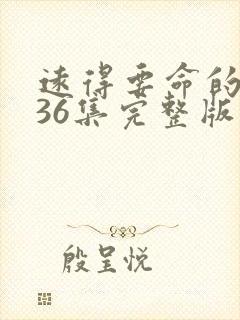 速得要命的
36集完整版
殷呈悦